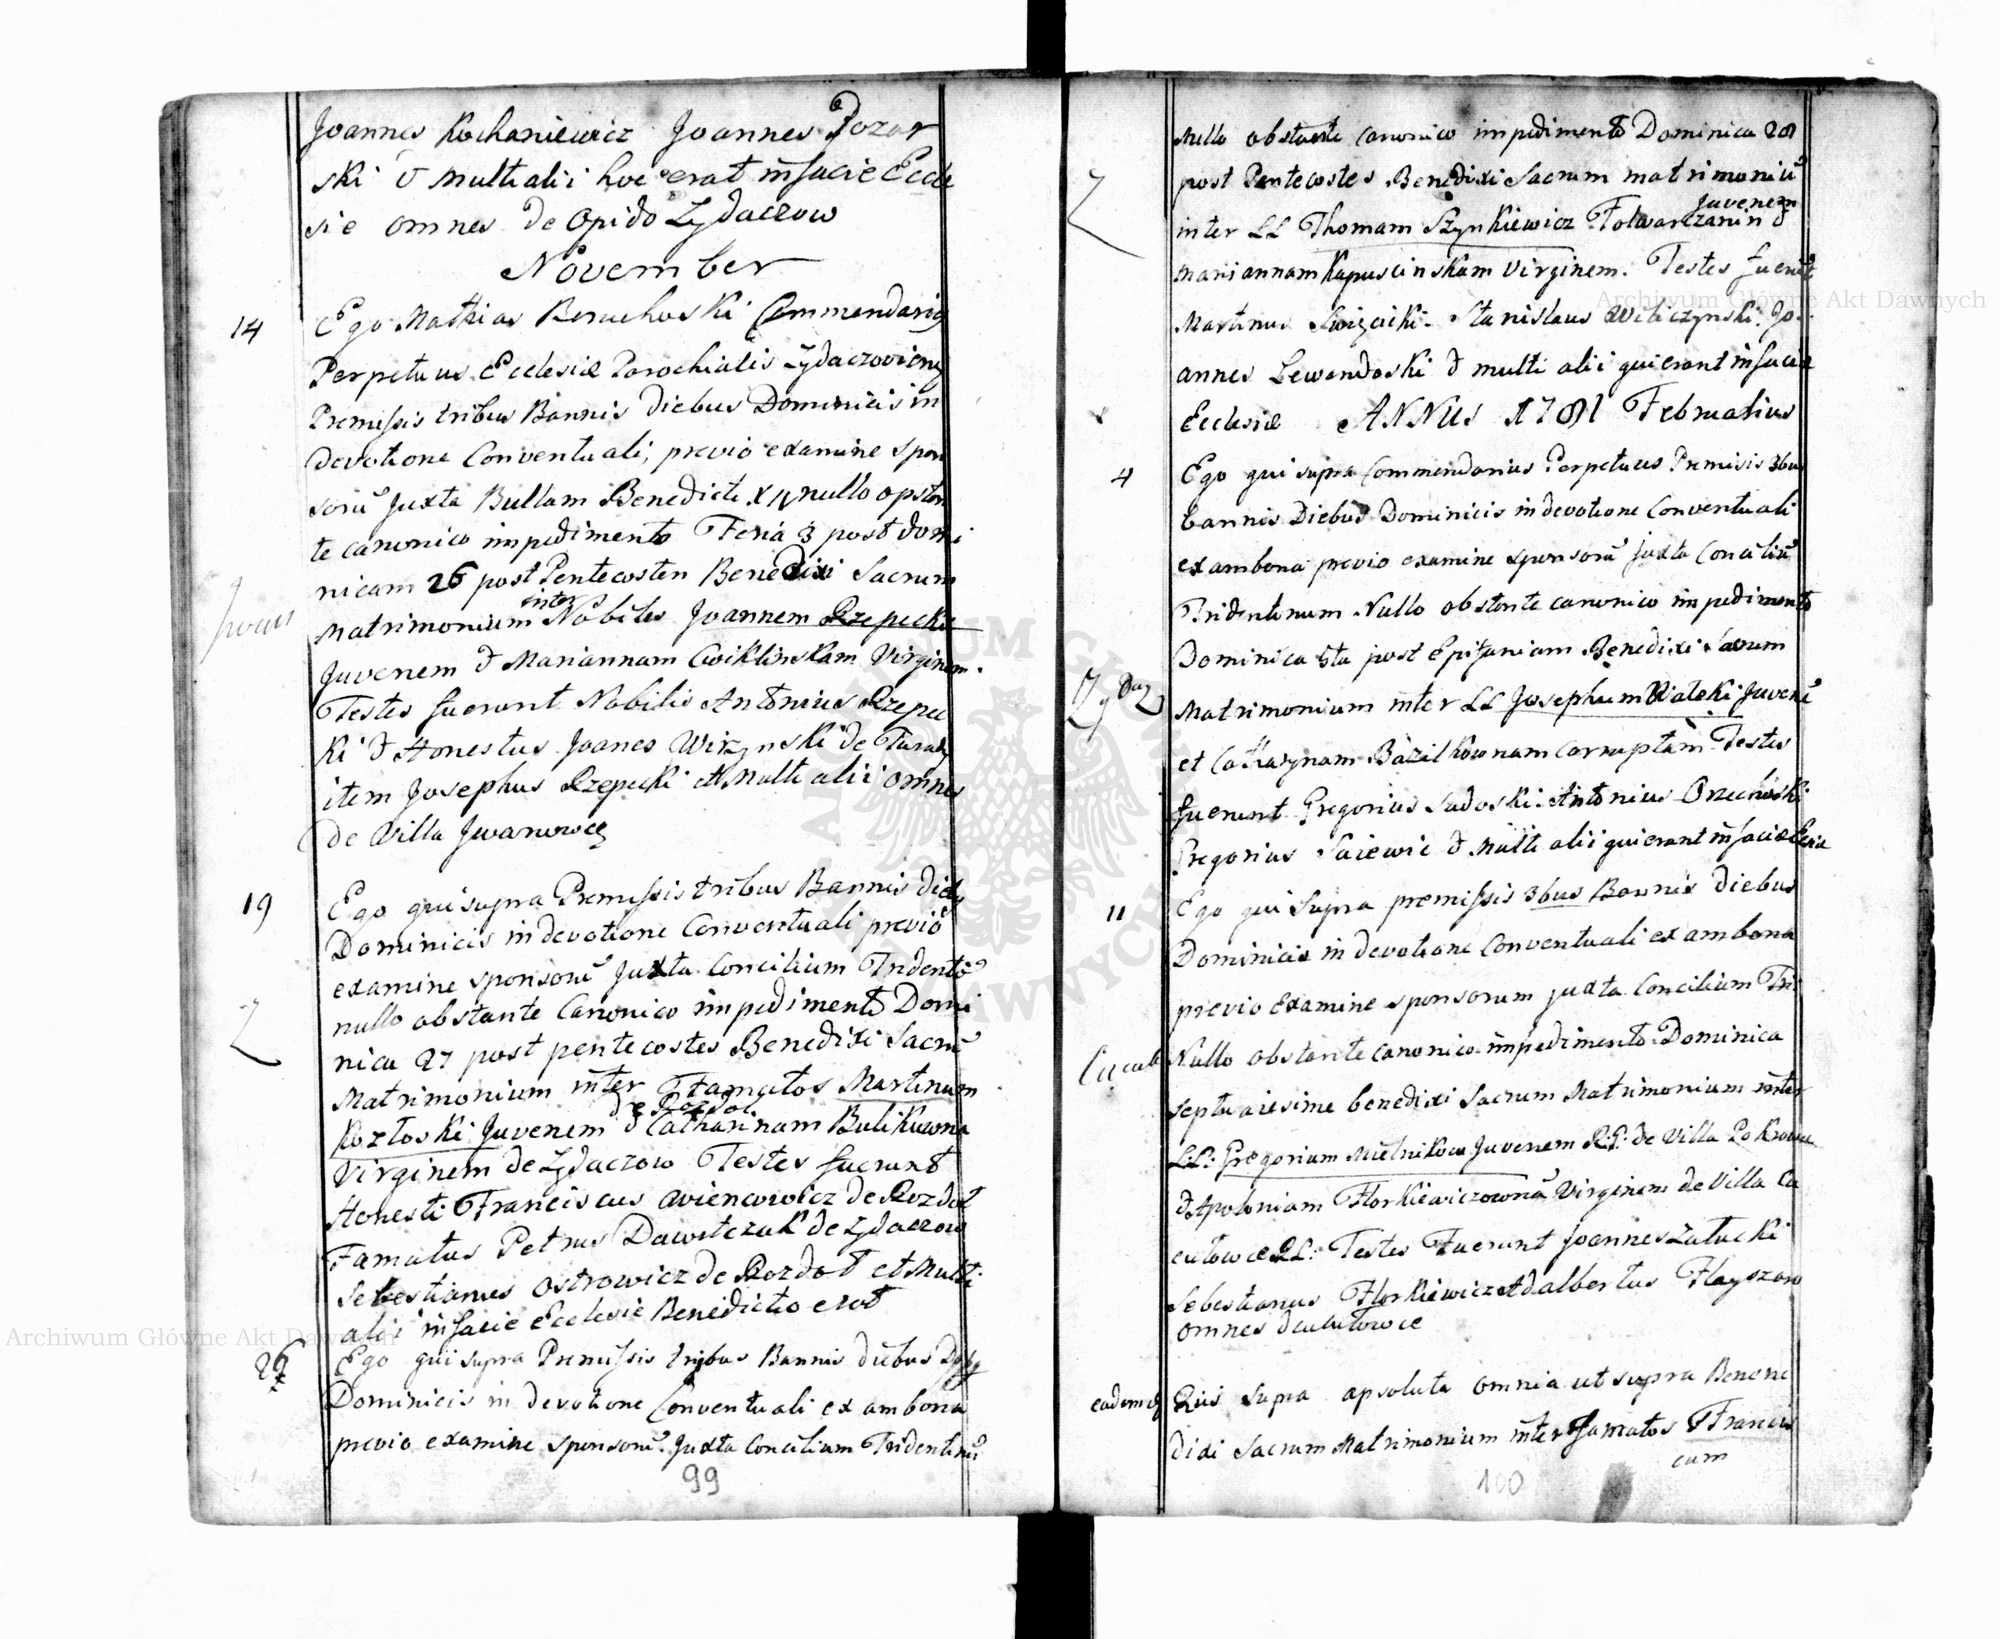 Joannes Kochaniewicz Joannes Pozar
ski & Multi alii hoc erat in facie Eccle
sie omnes de Opido Zydaczow
November
14 Ego Mathias Commendarius
Perpetuus Ecclesiæ Parochialis Zydaczoviensis
Premissis tribus Bannis Diebus Dominicis in
devotione Conventuali, previo examine spon
sorū Juxta Bullam Benedicti XIV nullo opstan
te canonico impedimento Feria 3 post domi
nicam 26 post Pentecosten Benedixi Sacrum
inter
Matrimonium Nobiles Joannem Rzepecki
Juvenem & Mariannam Cwiklinskam Virginem.
Testes fuerunt Nobilis Antonius Rzepec
ki & Honestus Joanes Wirzynski de
item Josephus Rzepecki et Multi alii omnes
de Villa Jwanowce
19 Ego qui supra Premissis tribus Bannis dieb9
Dominicis in devotione Conventuali previo
examine sponsorū Juxta Concilium Tridentō
nullo obstante Canonico impedimento Domi
Z
nica 27 post pentecostes Benedixi Sacrū
Matrimonium inter Famatos Martinum
de Rozdol
Kozłoski Juvenem & Catharinam Bulikowna
Virginem de Zydaczow Testes fuerunt
Honesti Franciscus Wiencowicz de Rozdol
Famatus Petrus Dawitczak de Zydaczow
Sebestianus Ostrowicz de Rozdoł et Multi
alii in facie Ecclesie Benedictio erat
26 Ego qui supra Premissis tribus Bannis diebus
Dominicis in devotione Conventuali ex ambona
previo examine sponsorū Juxta Concilium Tridentinū
99
Nullo obstante Canonico impedimento Dominica 28
post Pentecostes Benedixi Sacrum matrimoniū
Z
Juvenem
inter LL Thomam Szynkiewicz Folwarczanin &
Mariannam Kapuscinskam Virginem. Testes fuerūt
Martinus Swięcicki. Stanislaus Wiliczynski. Jo
annes Lewandoski & multi alii qui erant in facie
Ecclesiæ ANNUS 1781 Februalius
4 Ego qui supra Commendarius Perpetuus Premisis 3bus
bannis Diebus Dominicis in devotione Conventuali
ex ambona previo examine sponsorū juxta Conciliū
Tridentinum Nullo obstante canonico impedimento
Dominica 5ta post Epifaniam Benedixi Sacrum
Zydacz
Matrimonium inter LL Josephum Białoki Juvenē
et Catharynam Bazilkownam Corruptam Testes
fuerunt Gregorius Sadoski. Antonius Orzechoski
Gregorius Saiewic & Multi alii qui erant in facie Eccie
11 Ego qui Supra premissis 3bus Bannis diebus
Dominicis in devotione Conventuali ex ambona
previo Examine sponsorum juxta Concilium Tri:
Nullo obstante canonico impedimento Dominica
Cucul
septuaiesime benedixi Sacrum Matrimonium inter
LL: Gregorium Mielnikow Juvenem R:G: de Villa Pokrowce
& Apoloniam Florkiewiczownā Virginem de Villa Cu
cułowce RL: Testes Fuerunt Joannes Załucki
Sebestianus Florkiewicz Adalbertus Flayszow
omnes de Cucułowce
eadem Qui Supra apsoluta omnia ut supra Bene
dixi Sacrum Matrimonium inter Famatos Francis
cum
100
Archiwum Główne Akt Dawnych
Archiwum Główne Akt Dawnych
ARCHIWUM GŁÓWNE AKT DAWNYCH